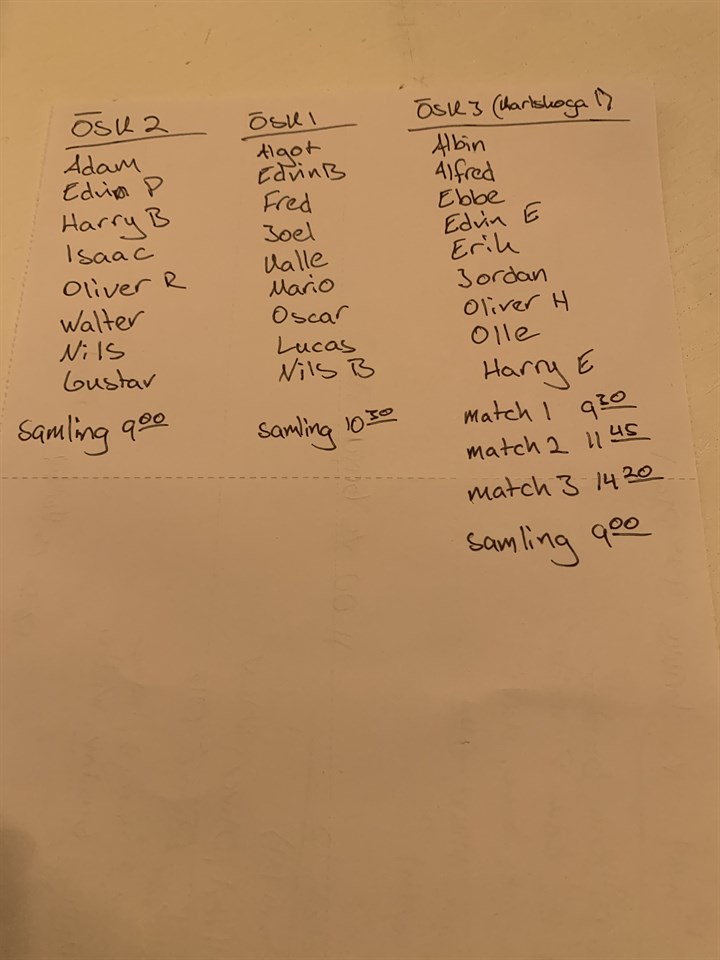 ÖSK 2
Adam
Edvin P
Harry B
Isaac
Oliver R
Walter
Nils
Gustav
Samling 9⁰⁰
ÖSK 1
Algot
Edvin B
Fred
Joel
Kalle
Mario
Oscar
Lucas
Nils B
Samling 10³⁰
ÖSK 3 (Karlskoga 1)
Albin
Alfred
Ebbe
Edvin E
Erik
Jordan
Oliver H
Olle
Harry E
match 1 9³⁰
match 2 11⁴⁵
match 3 14²⁰
samling 9⁰⁰